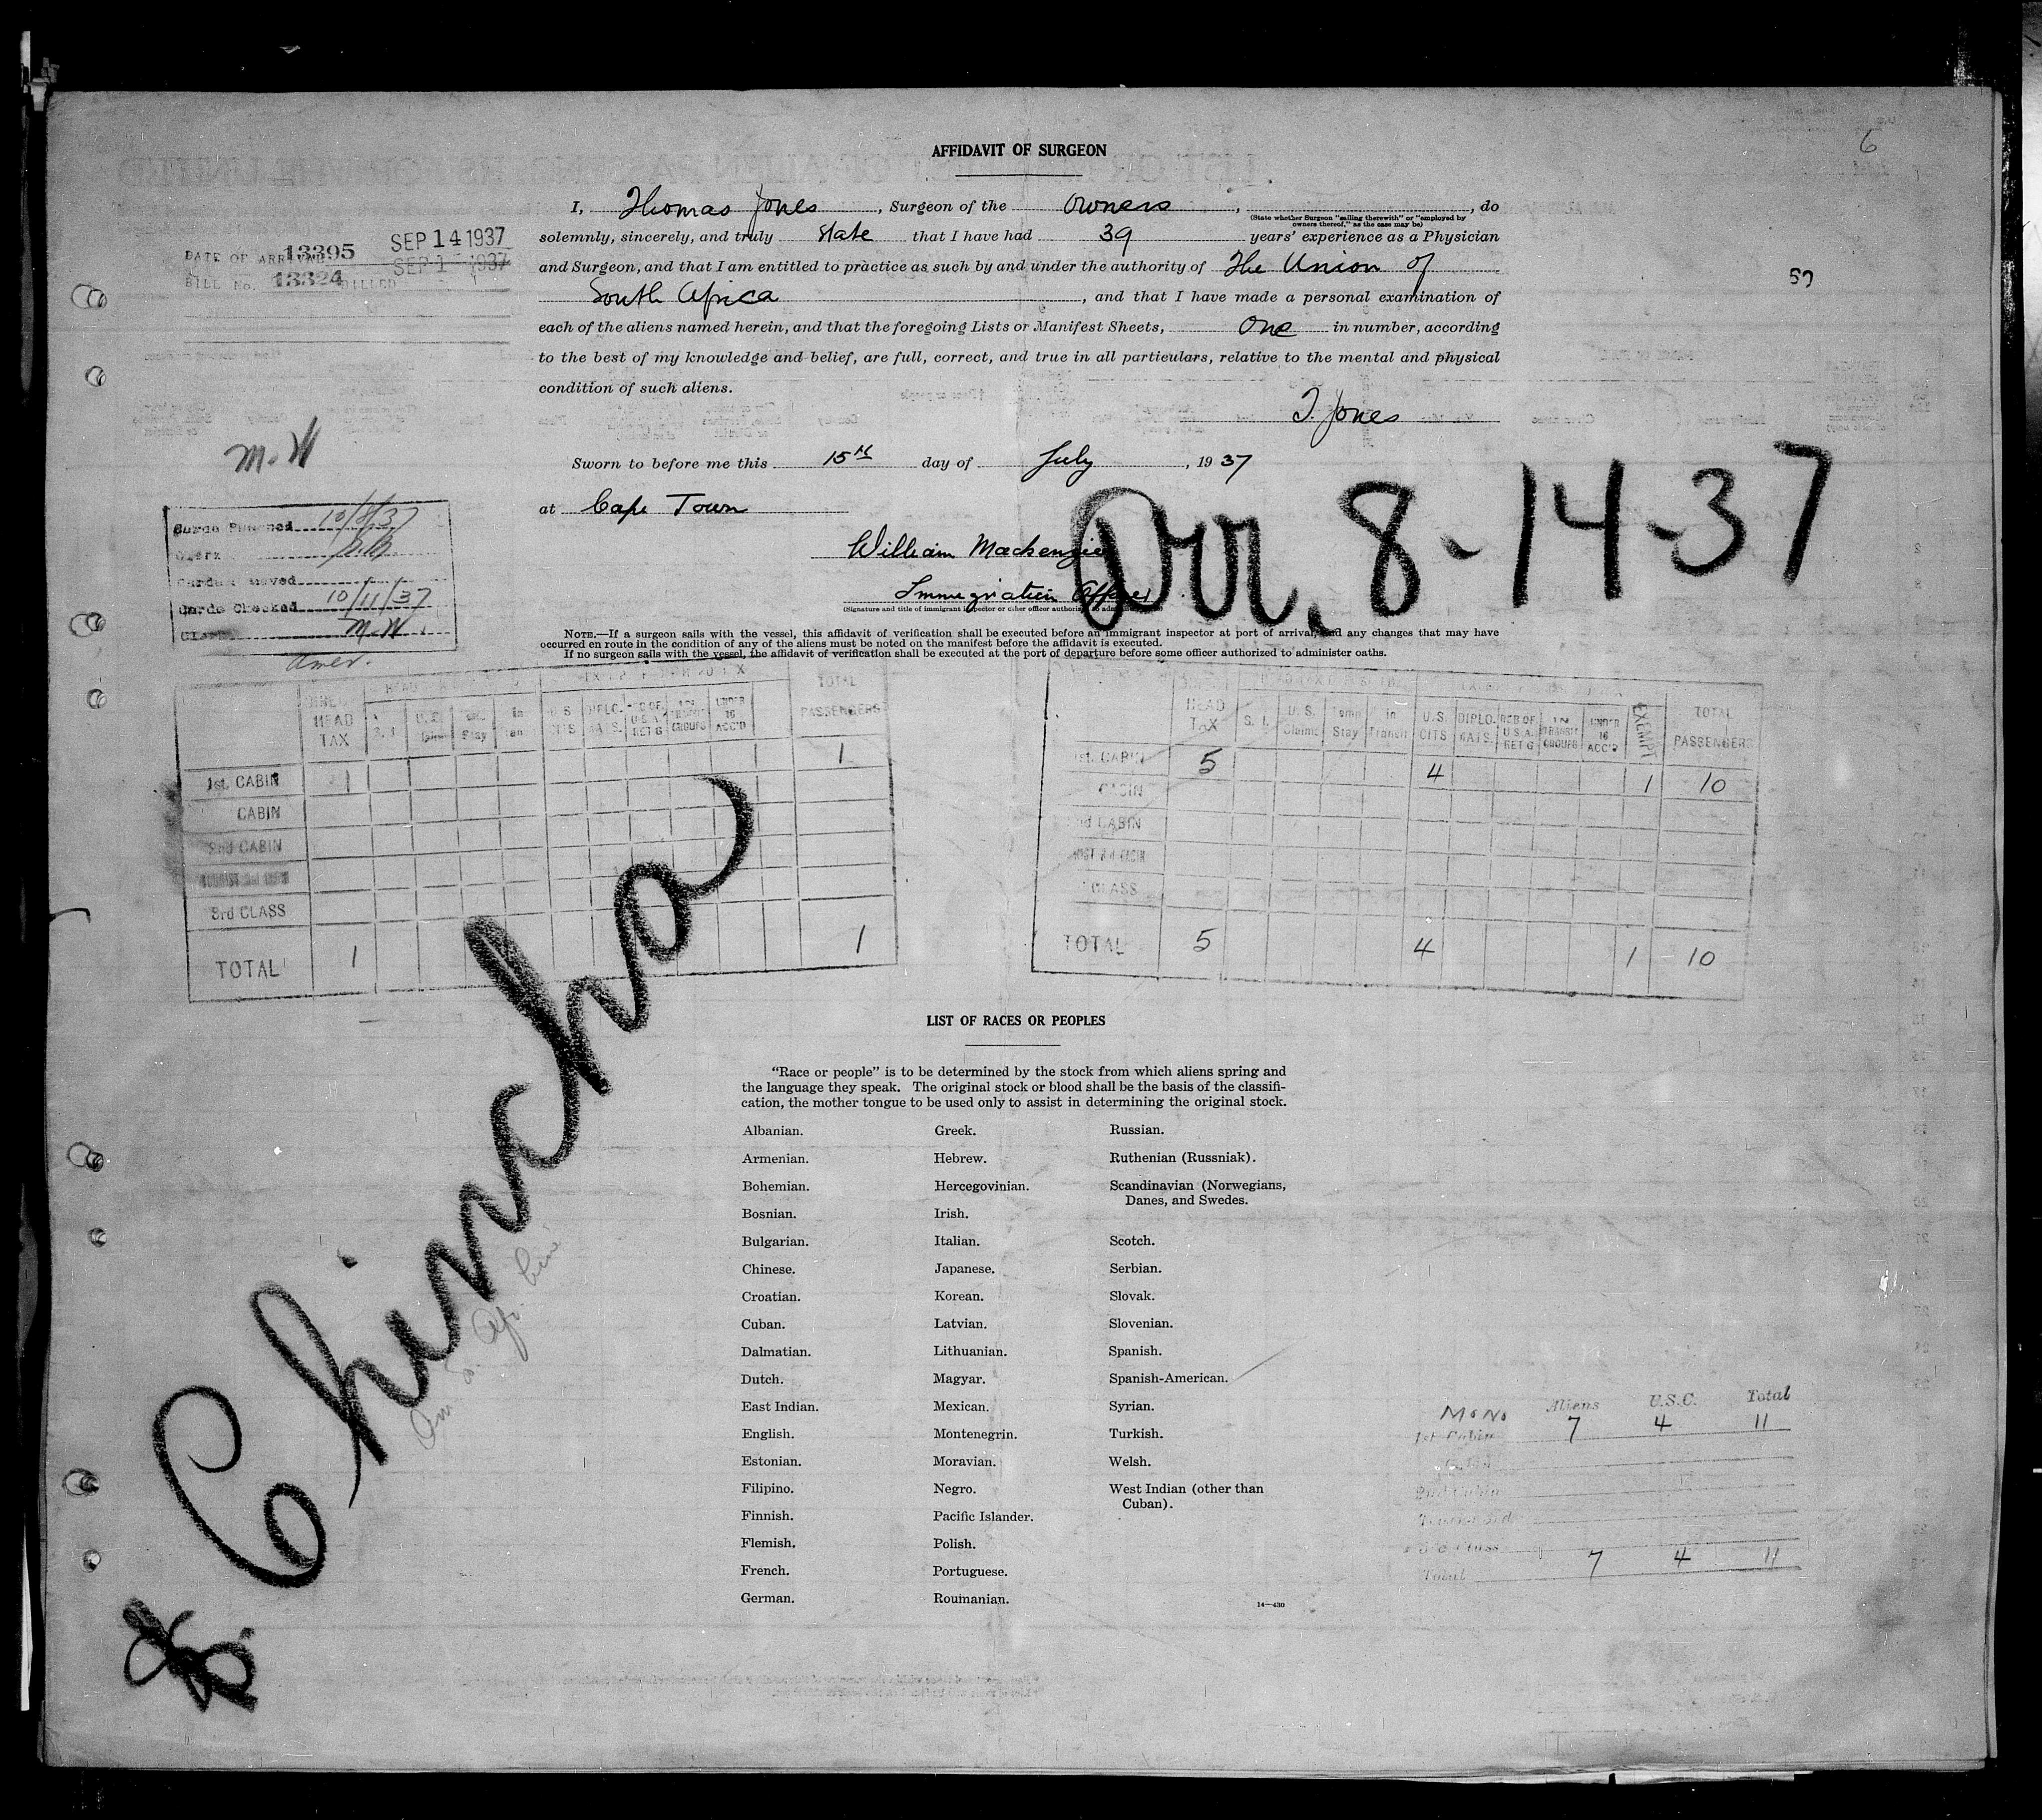 6
AFFIDAVIT OF SURGEON
I, Thomas Jones, Surgeon of the Owners, , do
(State whether Surgeon "sailing therewith" or "employed by owners thereof," as the case may be)
solemnly, sincerely, and truly state that I have had 39 years' experience as a Physician
and Surgeon, and that I am entitled to practice as such by and under the authority of The Union of
South Africa, and that I have made a personal examination of
each of the aliens named herein, and that the foregoing Lists or Manifest Sheets, One in number, according
to the best of my knowledge and belief, are full, correct, and true in all particulars, relative to the mental and physical
condition of such aliens.
T. Jones
Sworn to before me this 15th day of July, 1937
at Cape Town
William Mackenzie
Immigration Officer
(Signature and title of immigrant inspector or other officer authorized to
NOTE.—If a surgeon sails with the vessel, this affidavit of verification shall be executed before an immigrant inspector at port of arrival, and any changes that may have
occurred en route in the condition of any of the aliens must be noted on the manifest before the affidavit is executed.
If no surgeon sails with the vessel, the affidavit of verification shall be executed at the port of departure before some officer authorized to administer oaths.
DATE OF ARRIVAL 13395 SEP 14 1937
BILL No. 13324 BILLED SEP 1 1937
M.W
Cards Punched 10/8/37
Clerk
Cards
Cards Checked 10/11/37
Clerk M.W.
Amer.
Arr. 8-14-37
HEAD TAX S. I. U.S. Stay U S CITS DIPLO-MATS. RES OF U.S.A. RET'G IN TRANSIT GROUPS UNDER 16 ACC'D TOTAL PASSENGERS
1st. CABIN 1 1
CABIN
2nd CABIN
3rd CLASS
TOTAL 1 1
HEAD TAX S. I. U.S. Claims Temp Stay in Transit U.S. CITS DIPLO-MATS. RES OF U.S.A. RET'G IN TRANSIT GROUPS UNDER 16 ACC'D EXEMPT TOTAL PASSENGERS
1st. CABIN 5 4 1 10
CABIN
2nd CABIN
CLASS
TOTAL 5 4 1 10
Chincha
LIST OF RACES OR PEOPLES
"Race or people" is to be determined by the stock from which aliens spring and
the language they speak. The original stock or blood shall be the basis of the classifi-
cation, the mother tongue to be used only to assist in determining the original stock.
Albanian. Greek. Russian.
Armenian. Hebrew. Ruthenian (Russniak).
Bohemian. Hercegovinian. Scandinavian (Norwegians,
Danes, and Swedes.
Bosnian. Irish.
Bulgarian. Italian. Scotch.
Chinese. Japanese. Serbian.
Croatian. Korean. Slovak.
Cuban. Latvian. Slovenian.
Dalmatian. Lithuanian. Spanish.
Dutch. Magyar. Spanish-American.
East Indian. Mexican. Syrian.
English. Montenegrin. Turkish.
Estonian. Moravian. Welsh.
Filipino. Negro. West Indian (other than
Cuban).
Finnish. Pacific Islander.
Flemish. Polish.
French. Portuguese.
German. Roumanian.
14—430
Aliens U.S.C. Total
1st Cabin 7 4 11
2nd Cabin
3rd Class
Total 7 4 11